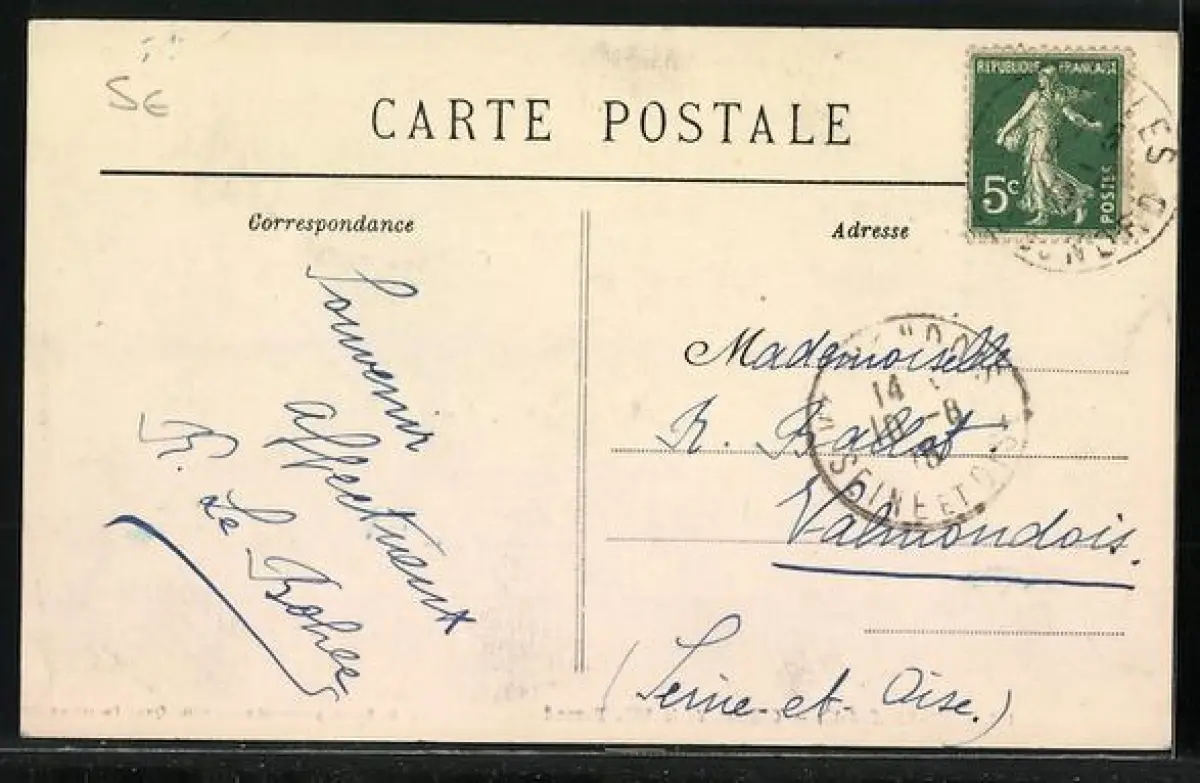 5€
CARTE POSTALE
REPUBLIQUE FRANÇAISE
5c
POSTES
Correspondance
Adresse
Souvenir
affectueux
R. Le Bohec
Mademoiselle
R. Ballot.
Valmondois.
(Seine-et-Oise.)
14
10-8
SEINE ET OISE